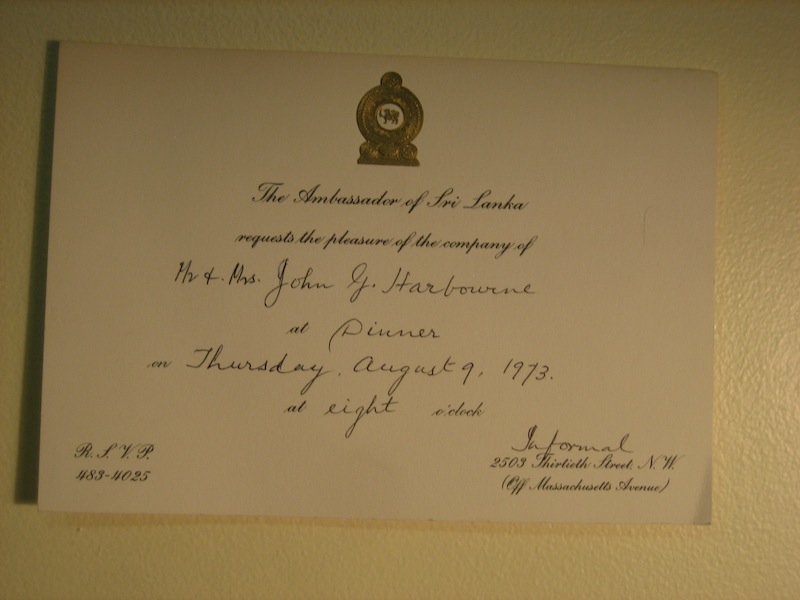 The Ambassador of Sri Lanka
requests the pleasure of the company of
Mr & Mrs. John G. Harbourne
at Dinner
on Thursday, August 9, 1973.
at eight o'clock
R.S.V.P.
483-4025
Informal
2503 Thirtieth Street, N.W.
(Off Massachusetts Avenue)